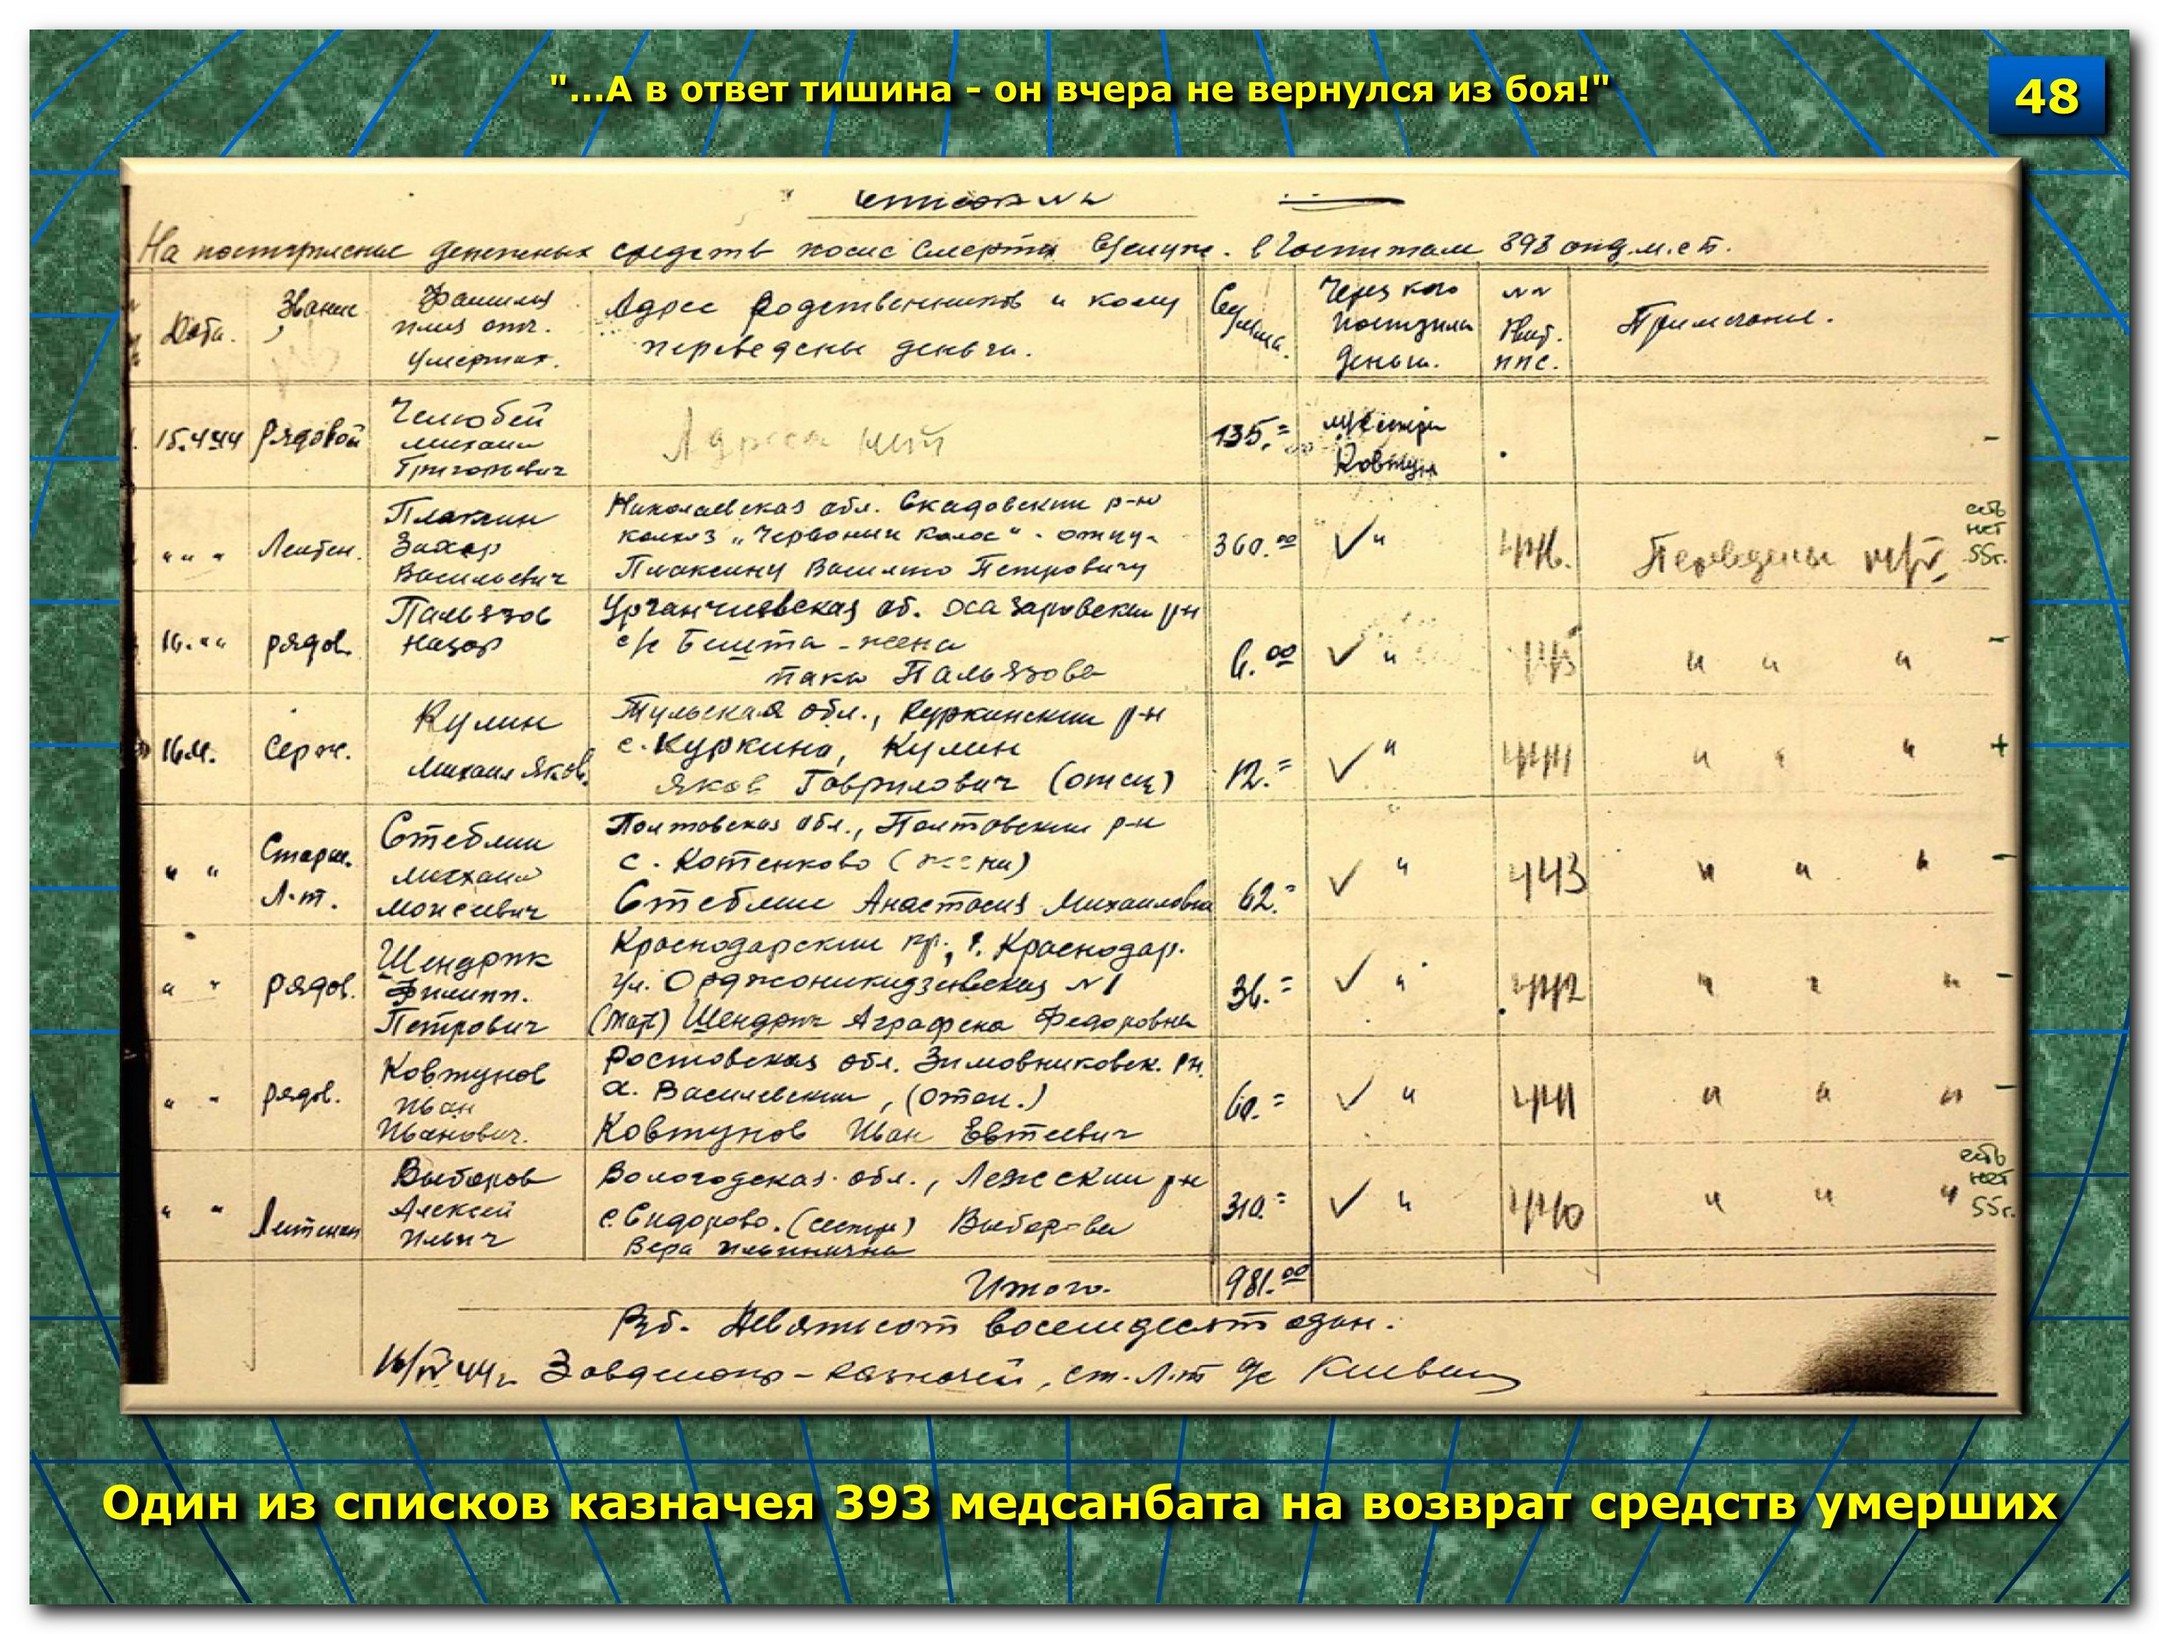 "...А в ответ тишина - он вчера не вернулся из боя!"
48
На денежных средств после смерти в госпитале 393 отд. м.с.б.
Дата.
Звание
Фамилия
имя отч.
умерших.
Адрес родственников и кому
переведены деньги.
Сумма.
Через кого
поступили
деньги.
№№
квит.
ппс.
Примечание.
15.4.44 Рядовой
Челюбей
Михаил
Григорьевич
Адреса нет
135.=
Ковтун
" " " Лейтен.
Плаксин
Захар
Васильевич
Николаевская обл. Скадовский р-н
колхоз "Червоний колос" - отцу -
Плаксину Василию Петровичу
360.00
✓ "
446.
Переведены
есть
нет
55г.
16. " " рядов.
Пальязов
Назар
об. р-н
с/с - жена
Пальязова
6.00
✓ "
445
" " "
-
16.4. Серж.
Кулин
Михаил Яков.
Тульская обл., Куркинский р-н
с. Куркина, Кулин
Яков Гаврилович (отец)
12.=
✓ "
444
" " "
+
" " Старш.
Л-т.
Стеблин
Михаил
Моисеевич
Полтовская обл., Полтовский р-н
с. Котенково (жена)
Стеблин Анастасия Михайловна
62.=
✓ "
443
" " "
-
" " рядов.
Шендрик
Филипп.
Петрович
Краснодарский кр., г. Краснодар.
ул. Орджоникидзевская №1
(мат) Шендрик Аграфена Федоровна
36.=
✓ "
442
" " "
-
" " рядов.
Ковтунов
Иван
Иванович.
Ростовская обл. Зимовниковск. рн.
х. Василевский, (отец.)
Ковтунов Иван Евтеевич
60.=
✓ "
441
" " "
-
" " Лейтенан
Выборов
Алексей
Ильич
Вологодская обл., Лежский рн
с. Сидорово. (сестра) Выборова
Вера Ильинична
310.=
✓ "
440
" " "
есть
нет
55г.
Итого. 981.00
Руб. Девятьсот восемьдесят один.
16/IV 44г. Завделопр-казначей, ст. Л-т а/с
Один из списков казначея 393 медсанбата на возврат средств умерших